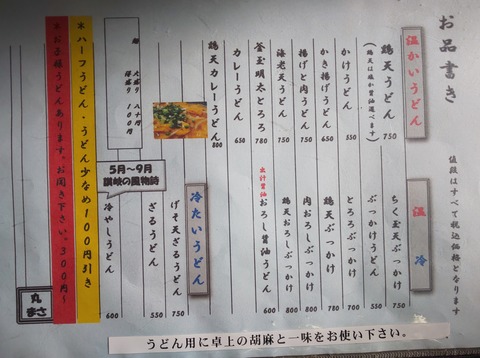 お品書き
値段はすべて税込価格となります
温かいうどん
鶏天うどん 750
(鶏天は塩か醤油選べます)
かけうどん 550
かき揚げうどん 650
揚げと肉うどん 750
海老天うどん 750
釜玉明太とろろ 780
カレーうどん 650
鶏天カレーうどん 800
温 冷
ちく玉天ぶっかけ 750
ぶっかけうどん 550
とろろぶっかけ 700
鶏天ぶっかけ 750
肉おろしぶっかけ 780
鶏天おろしぶっかけ 800
出汁醤油おろし醤油うどん 600
冷たいうどん
げそ天ざるうどん 750
ざるうどん 550
5月～9月
讃岐の風物詩
冷やしうどん 600
麺 大盛り 八十円
得盛り 100円
※ハーフうどん・うどん少なめ100円引き
※お子様うどんあります。お聞き下さい。300円～
丸
まさ
うどん用に卓上の胡麻と一味をお使い下さい。